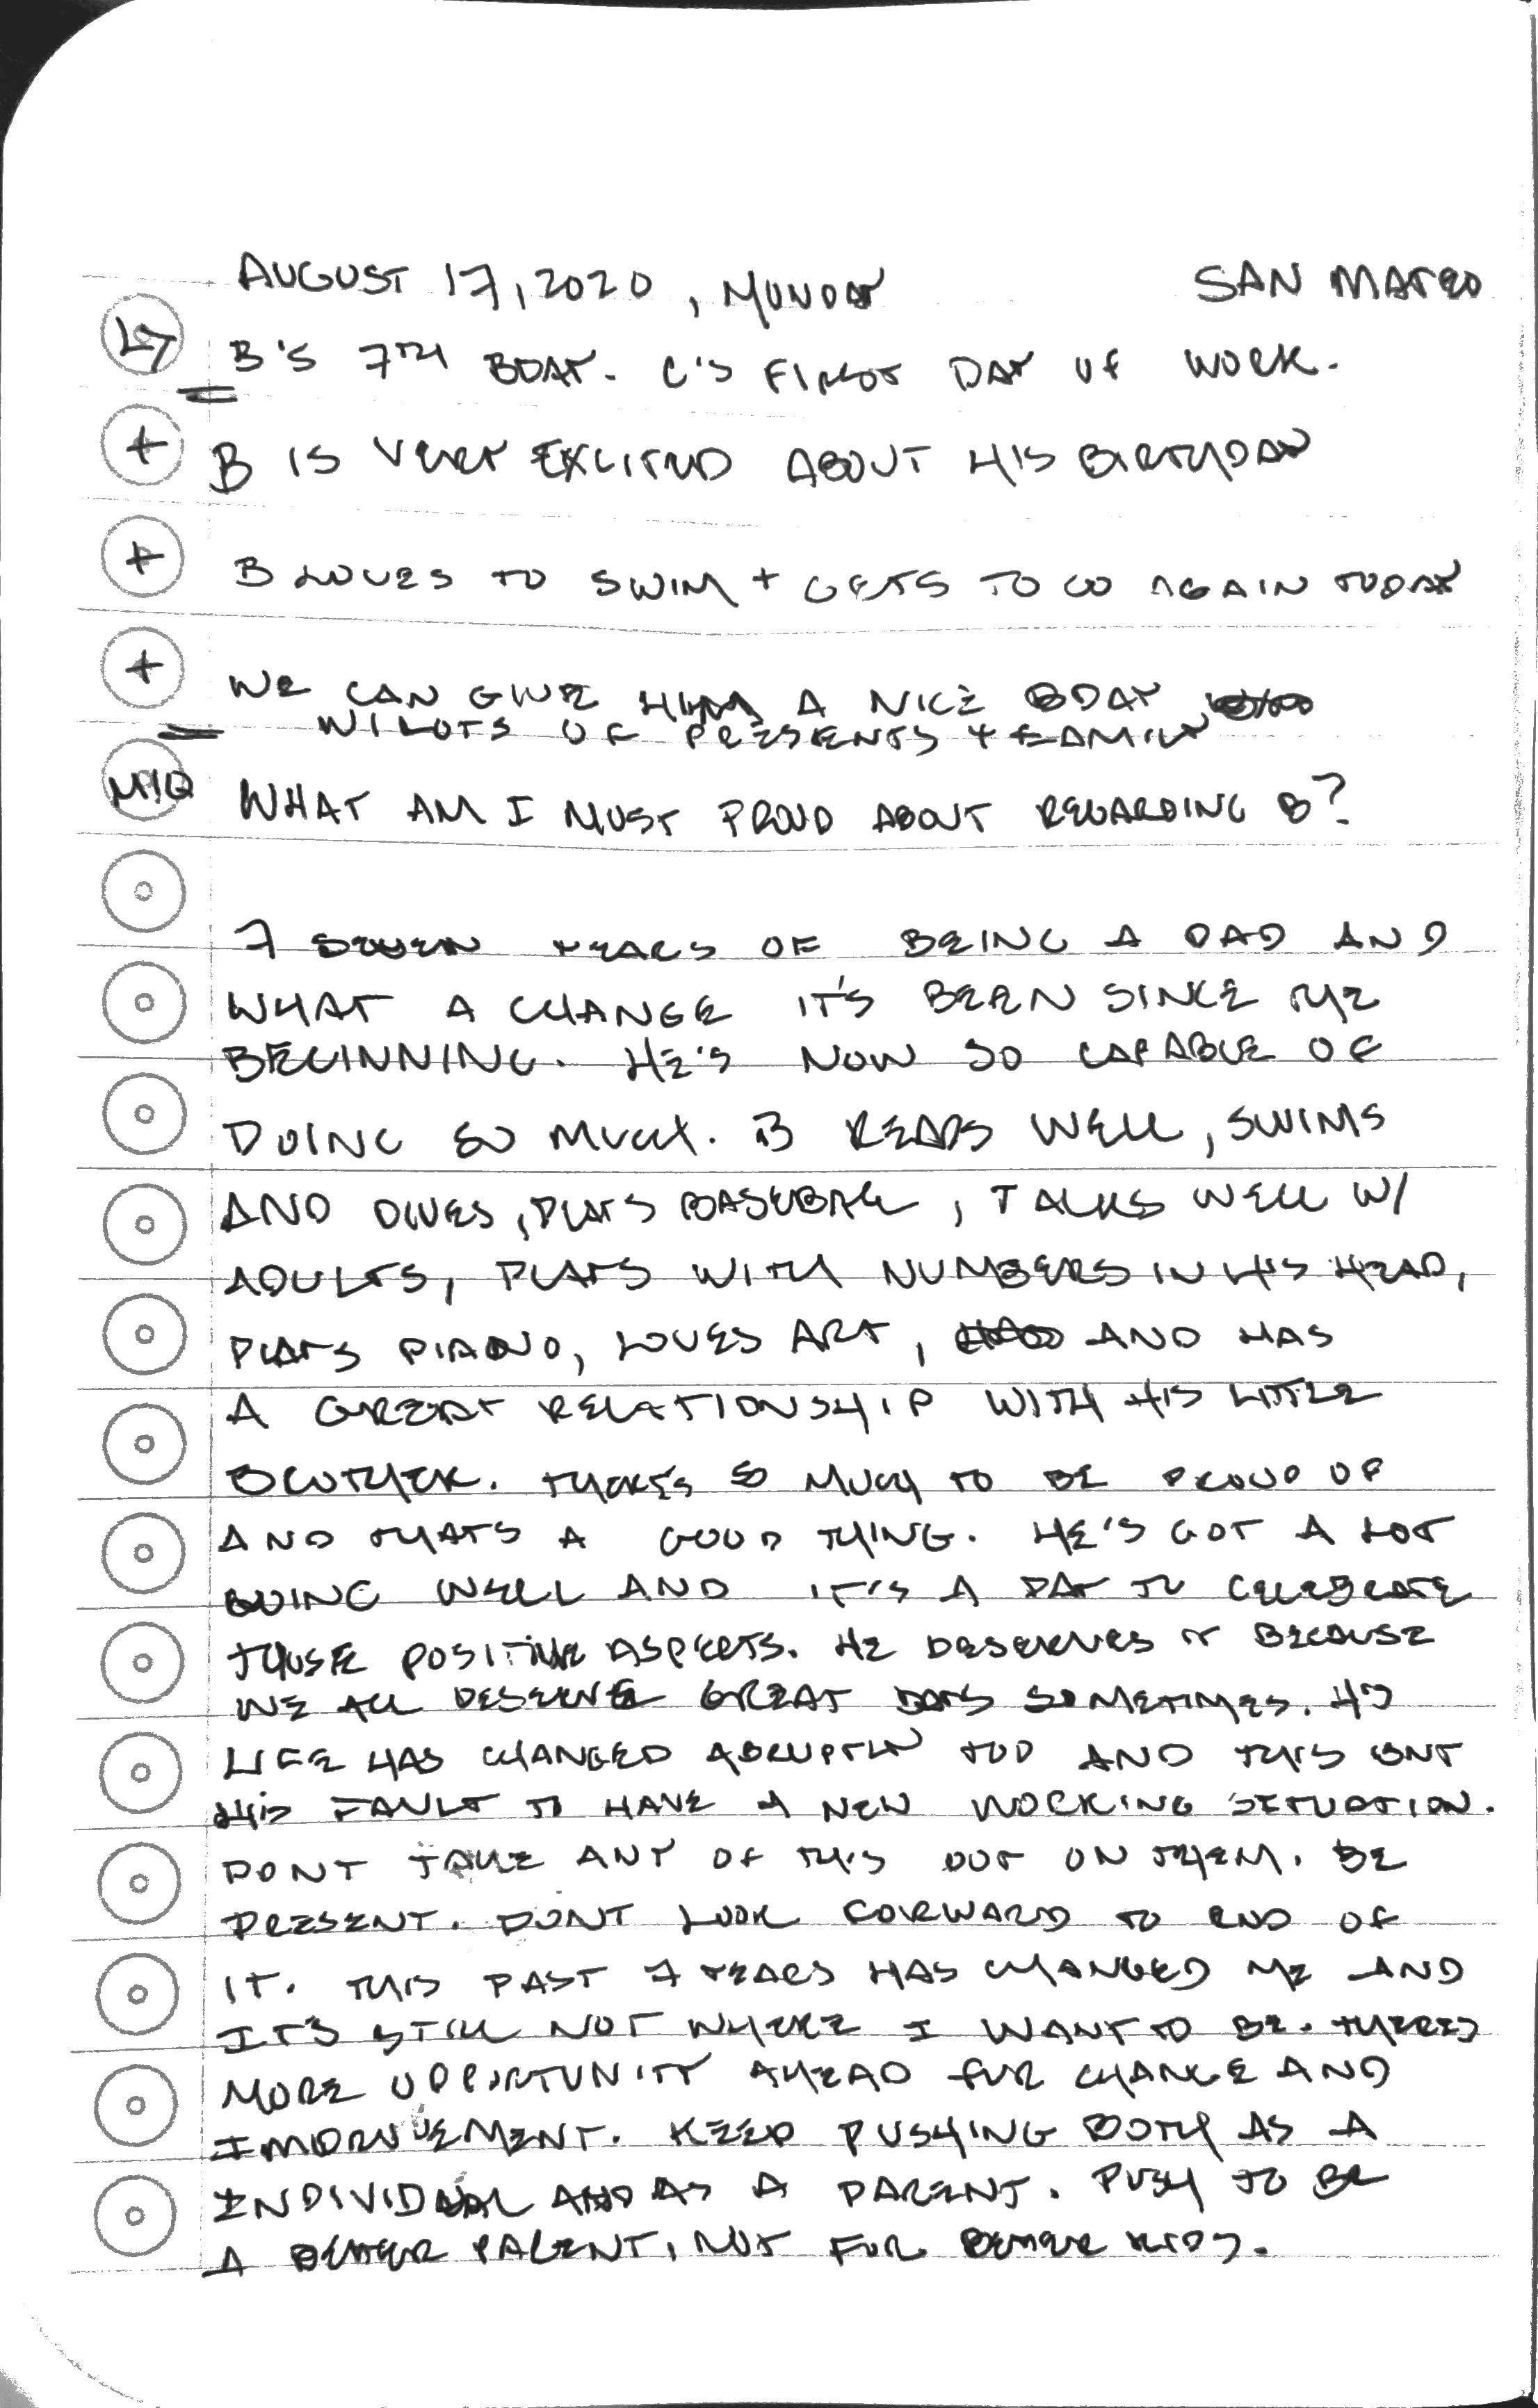 AUGUST 17, 2020, MONDAY SAN MATEO
LT B'S 7TH BDAY. C'S FIRST DAY OF WORK.
+ B IS VERY EXCITED ABOUT HIS BIRTHDAY
+ B LOVES TO SWIM + GETS TO GO AGAIN TODAY
+ WE CAN GIVE HIM A NICE BDAY
W/ LOTS OF PRESENTS + FAMILY
MIQ WHAT AM I MOST PROUD ABOUT REGARDING B?
7 SEVEN YEARS OF BEING A DAD AND
WHAT A CHANGE IT'S BEEN SINCE THE
BEGINNING. HE'S NOW SO CAPABLE OF
DOING SO MUCH. B READS WELL, SWIMS
AND DIVES, PLAYS BASEBALL, TALKS WELL W/
ADULTS, PLAYS WITH NUMBERS IN HIS HEAD,
PLAYS PIANO, LOVES ART, AND HAS
A GREAT RELATIONSHIP WITH HIS LITTLE
BROTHER. THERE'S SO MUCH TO BE PROUD OF
AND THATS A GOOD THING. HE'S GOT A LOT
GOING WELL AND IT'S A DAY TO CELEBRATE
THOSE POSITIVE ASPECTS. HE DESERVES IT BECAUSE
WE ALL DESERVE GREAT DAYS SOMETIMES. HIS
LIFE HAS CHANGED ABRUPTLY TOO AND THIS ISNT
HIS FAULT TO HAVE A NEW WORKING SITUATION.
DONT TAKE ANY OF THIS OUT ON THEM. BE
PRESENT. DONT LOOK FORWARD TO END OF
IT. THIS PAST 7 YEARS HAS CHANGED ME AND
IT'S STILL NOT WHERE I WANT TO BE. THERES
MORE OPPORTUNITY AHEAD FOR CHANGE AND
IMPROVEMENT. KEEP PUSHING BOTH AS A
INDIVIDUAL AND AS A PARENT. PUSH TO BE
A BETTER PARENT, NOT FOR BETTER KIDS.